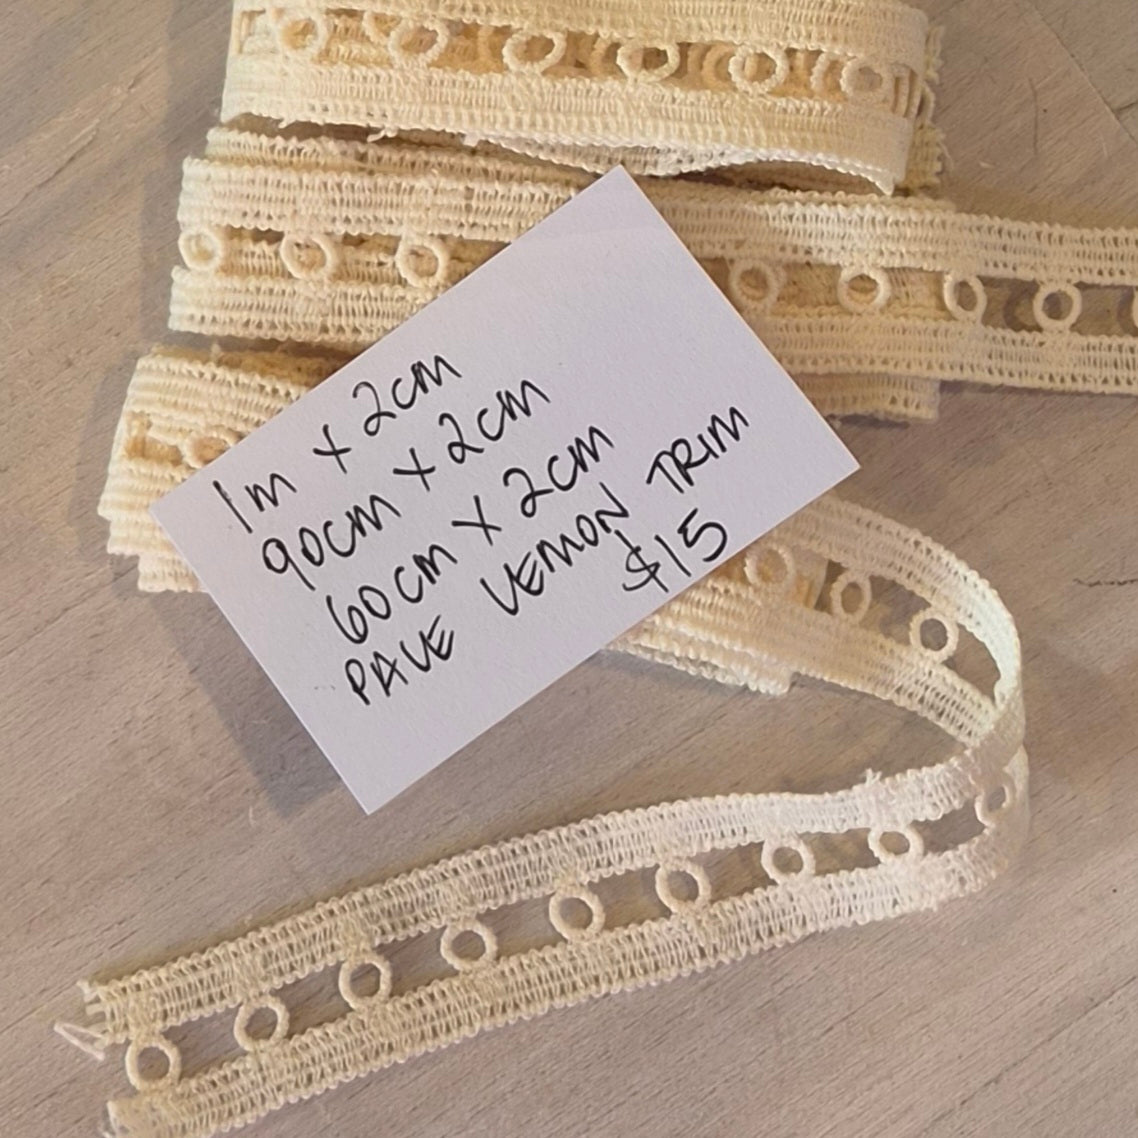 1m x 2cm
90cm x 2cm
60cm x 2cm
PALE LEMON TRIM
$15